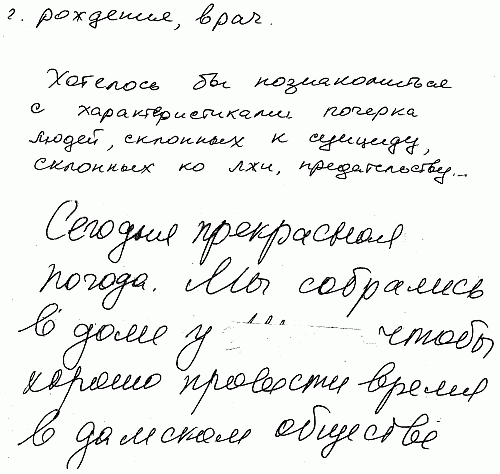 г. рождения, врач.
Хотелось бы познакомиться
с характеристиками почерка
людей, склонных к суициду,
склонных ко лжи, предательству...
Сегодня прекрасная
погода. Мы собрались
в доме у ... чтобы
хорошо провести время
в дамском обществе